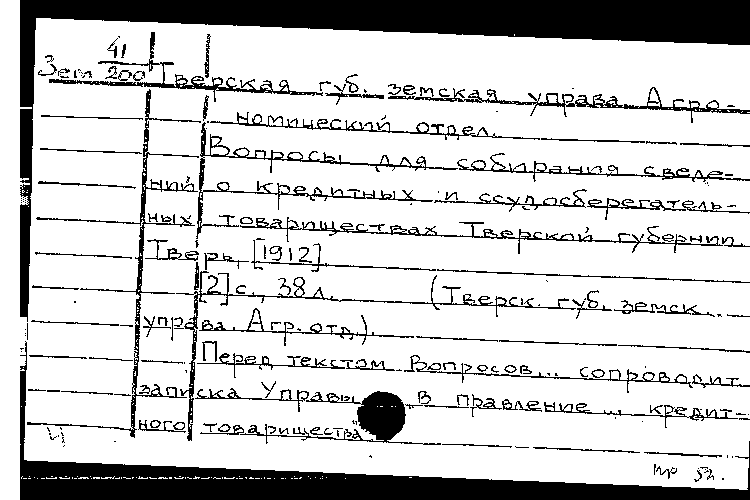 Зем 41/200 Тверская губ. земская управа. Агро-
номический отдел.
Вопросы для собирания сведе-
ний о кредитных и ссудосберегатель-
ных товариществах Тверской губернии.
Тверь, [1912].
[2] с., 38 л. (Тверск. губ. земск.
управа. Агр. отд.).
Перед текстом Вопросов... сопроводит.
записка Управы "В правление ... кредит-
ного товарищества"